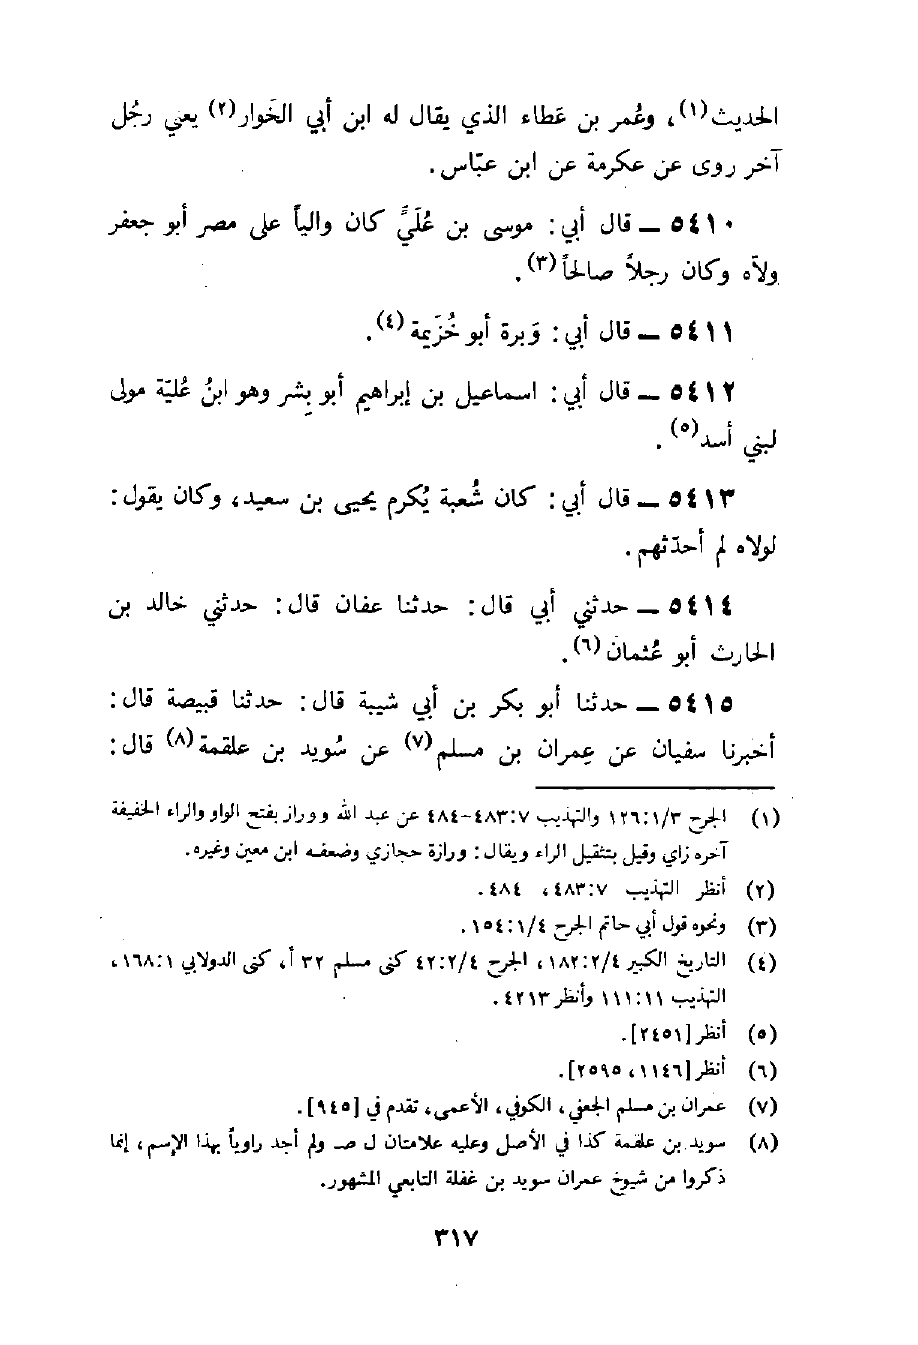 الحديث(١)، وعُمر بن عَطاء الذي يقال له ابن أبي الخَوار(٢) يعني رجُل
آخر روى عن عكرمة عن ابن عبّاس.
٥٤١٠ ــ قال أبي: موسى بن عُلَيًّ كان والياً على مصر أبو جعفر
ولاّه وكان رجلاً صالحاً(٣).
٥٤١١ ــ قال أبي: وَبرة أبو خُزَيمة(٤).
٥٤١٢ ــ قال أبي: اسماعيل بن إبراهيم أبو بِشر وهو ابنُ عُليّة مولى
لبني أسد(٥).
٥٤١٣ ــ قال أبي: كان شُعبة يُكرم يحيى بن سعيد، وكان يقول:
لولاه لم أحدّثهم.
٥٤١٤ ــ حدثني أبي قال: حدثنا عفان قال: حدثني خالد بن
الحارث أبو عُثمان(٦).
٥٤١٥ ــ حدثنا أبو بكر بن أبي شيبة قال: حدثنا قبيصة قال:
أخبرنا سفيان عن عِمران بن مسلم(٧) عن سُويد بن علقمة(٨) قال:
(١) الجرح ١٢٦:١/٣ والتهذيب ٤٨٣:٧–٤٨٤ عن عبد الله ووراز بفتح الواو والراء الخفيفة
آخره زاي وقيل بتثقيل الراء ويقال: ورازة حجازي وضعفه ابن معين وغيره.
(٢) أنظر التهذيب ٤٨٣:٧، ٤٨٤.
(٣) ونحوه قول أبي حاتم الجرح ١٥٤:١/٤.
(٤) التاريخ الكبير ١٨٢:٢/٤، الجرح ٤٢:٢/٤ كنى مسلم ٣٢ أ، كنى الدولابي ١٦٨:١،
التهذيب ١١١:١١ وأنظر ٤٢١٣.
(٥) أنظر [٢٤٥١].
(٦) أنظر [١١٤٦، ٢٥٩٥].
(٧) عمران بن مسلم الجعفي، الكوفي، الأعمى، تقدم في [٩٤٥].
(٨) سويد بن علقمة كذا في الأصل وعليه علامتان ل صـ ولم أجد راوياً بهذا الإسم، إنما
ذكروا من شيوخ عمران سويد بن غفلة التابعي المشهور.
٣١٧